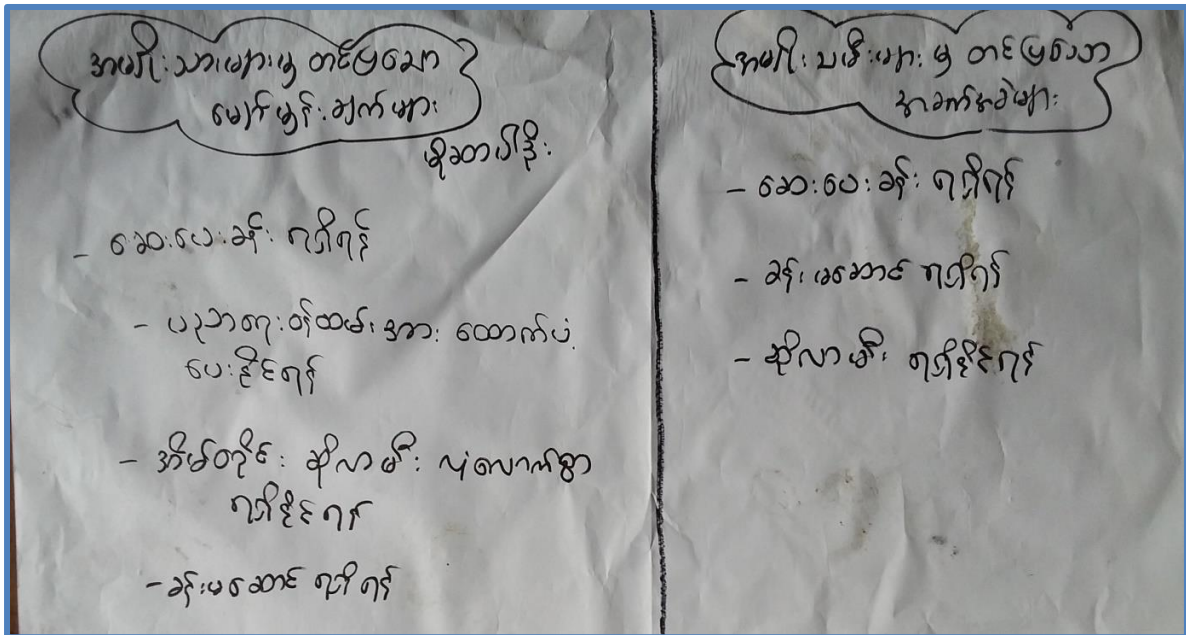 အမျိုးသားများမှ တင်ပြသော
မျှော်မှန်းချက်များ
- ဆေးပေးခန်း ရရှိရန်
- ပညာရေးဝန်ထမ်းအား ထောက်ပံ့
ပေးနိုင်ရန်
- အိမ်တိုင်း ဆိုလာမီး လုံလောက်စွာ
ရရှိနိုင်ရန်
- ခန်းမဆောင် ရရှိရန်
အမျိုးသမီးများမှ တင်ပြသော
အခက်အခဲများ
- ဆေးပေးခန်း ရရှိရန်
- ခန်းမဆောင် ရရှိရန်
- ဆိုလာမီး ရရှိနိုင်ရန်